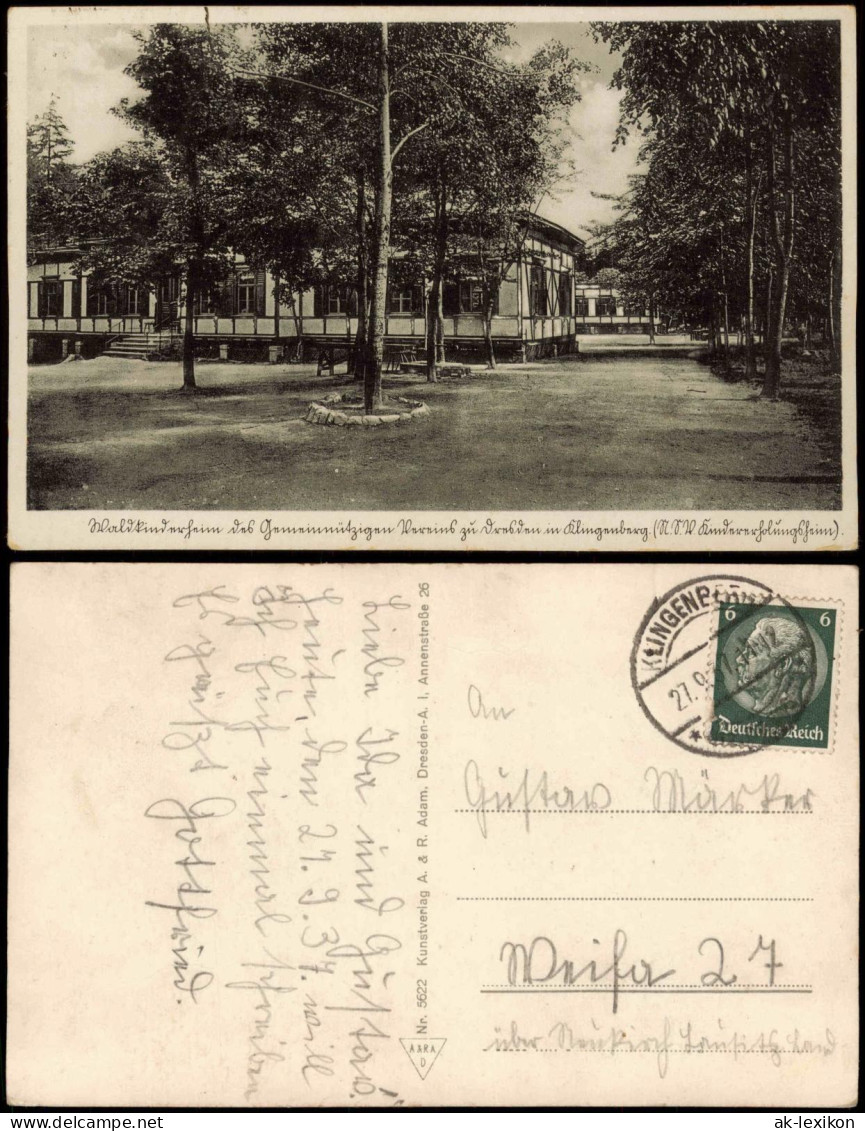 Waldkinderheim des Gemeinnützigen Vereins zu Dresden in Klingenberg. (N.S.V. Kindererholungsheim).
Liebe Ida und Gustav.
Heute, den 27. 9. 37. will
ich Euch einmal schreiben
Es grüßt Gottfried.
Nr. 5622 Kunstverlag A. & R. Adam, Dresden-A. I, Annenstraße 26
A&RA
D
KLINGENBERG
27.9.37
6 6
Deutsches Reich
An
Gustav Märker
Weifa 27
über Neukirch Lausitz Land
ak-lexikon